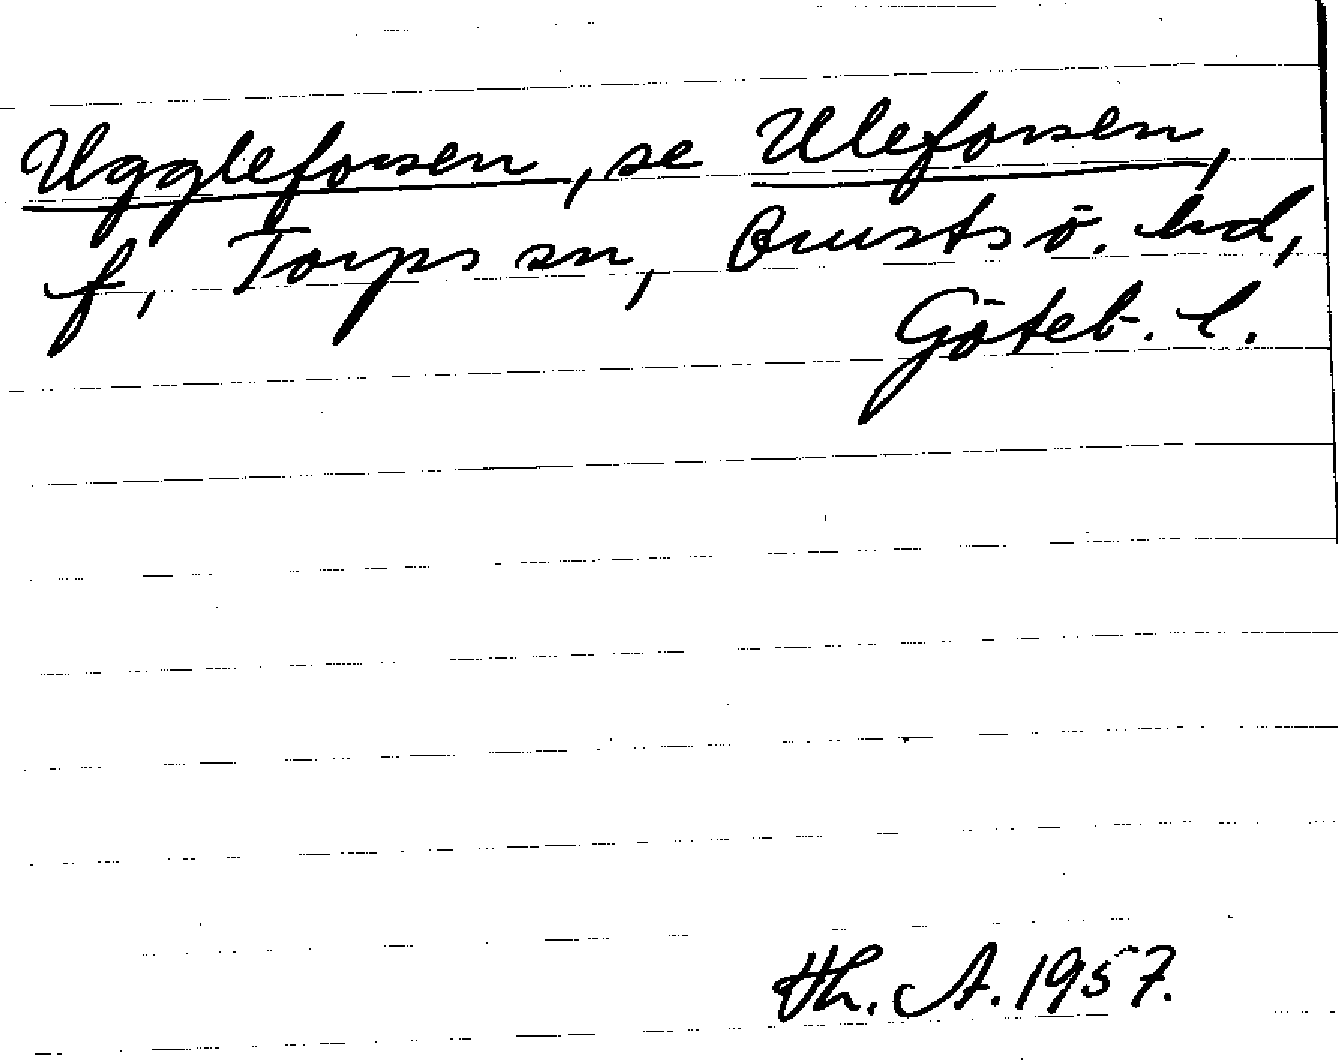 Uggleforsen, se Uleforsen,
f, Torps sn, Orusts ö. hd,
Göteb. l.
Th. A. 1957.